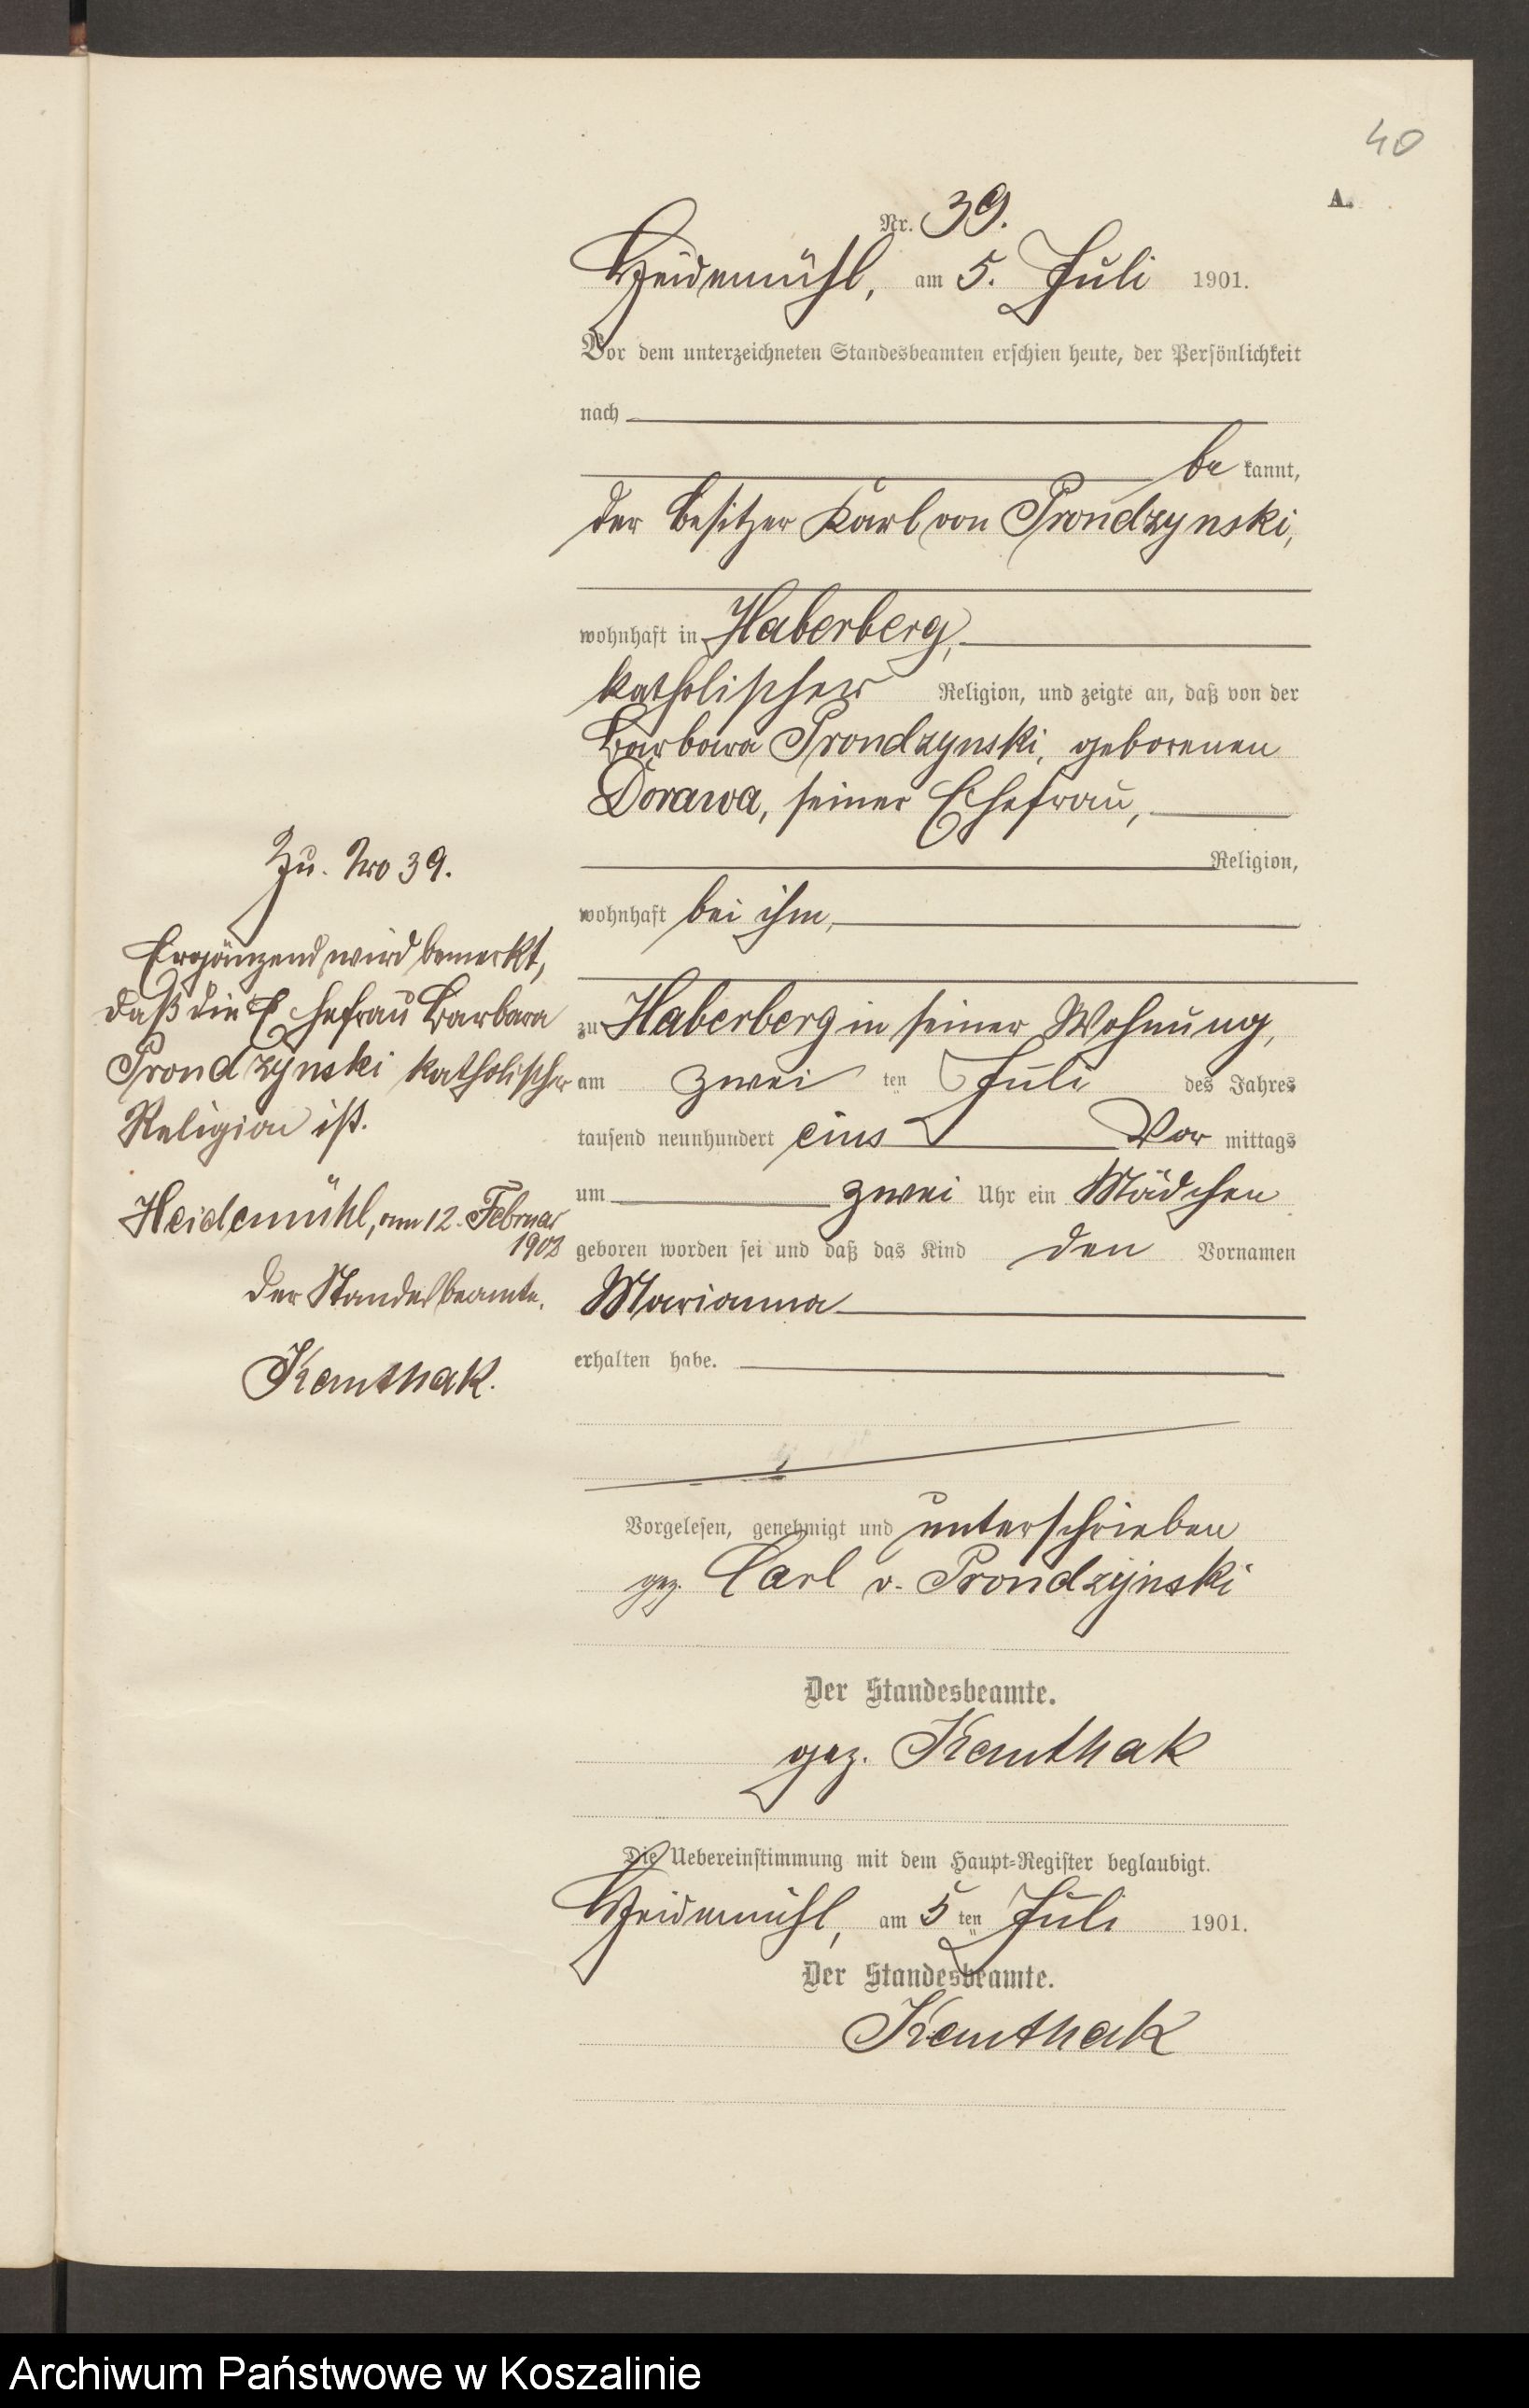 40
A.
Nr. 39.
Heidemühl, am 5. Juli 1901.
Vor dem unterzeichneten Standesbeamten erschien heute, der Persönlichkeit
nach
be kannt,
der Besitzer Karl von Prondzynski,
wohnhaft in Haberberg,
katholischer Religion, und zeigte an, daß von der
Barbara Prondzynski, geborenen
Dorawa, seiner Ehefrau,
Religion,
wohnhaft bei ihm,
zu Haberberg in seiner Wohnung,
am zwei ten Juli des Jahres
tausend neunhundert eins Vor mittags
um zwei Uhr ein Mädchen
geboren worden sei und daß das Kind den Vornamen
Marianna
erhalten habe.
Vorgelesen, genehmigt und unterschrieben
gez. Carl v. Prondzynski
Der Standesbeamte.
gez. Kauthak
Die Uebereinstimmung mit dem Haupt-Register beglaubigt.
Heidemühl, am 5 ten Juli 1901.
Der Standesbeamte.
Kauthak
Zu. Nro 39.
Ergänzend wird bemerkt,
daß die Ehefrau Barbara
Prondzynski katholischer
Religion ist.
Heidemühl, am 12. Februar
Der Standesbeamte.
Kauthak.
Archiwum Państwowe w Koszalinie